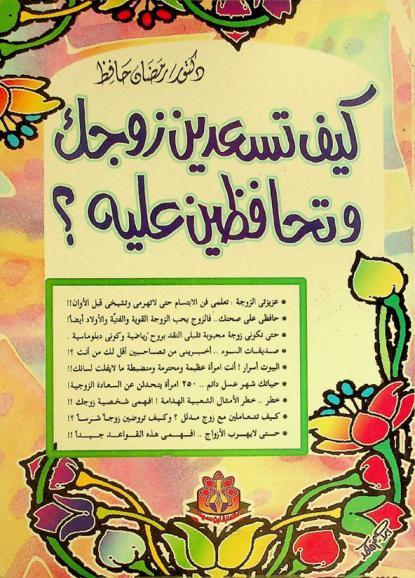 دكتور/ رمضان حافظ
كيف تسعدين زوجك
وتحافظين عليه ؟
* عزيزتى الزوجة : تعلمى فن الابتسام حتى لاتهرمى وتشيخى قبل الأوان!!
* حافظى على صحتك .. فالزوج يحب الزوجة القوية والفتيّة والأولاد أيضاً!
* حتى تكونى زوجة محبوبة تقبلى النقد بروح رياضية وكونى دبلوماسية .
* صديقات السوء .. أخبرينى من تصاحبين أقل لك من أنت ؟!
* البيوت أسرار ! أنت امرأة عظيمة ومحترمة ومنضبطة ما لايفلت لسانك!!
* حياتك شهر عسل دائم .. ٢٥٠ امرأة يتحدثن عن السعادة الزوجية!
* خطر .. خطر الأمثال الشعبية الهدامة ! افهمى شخصية زوجك !!
* كيف تتعاملين مع زوج مدلل ؟ وكيف تروضين زوجاً شرساً ؟!
* حتى لايهرب الأزواج .. افهمى هذه القواعد جيداً !!